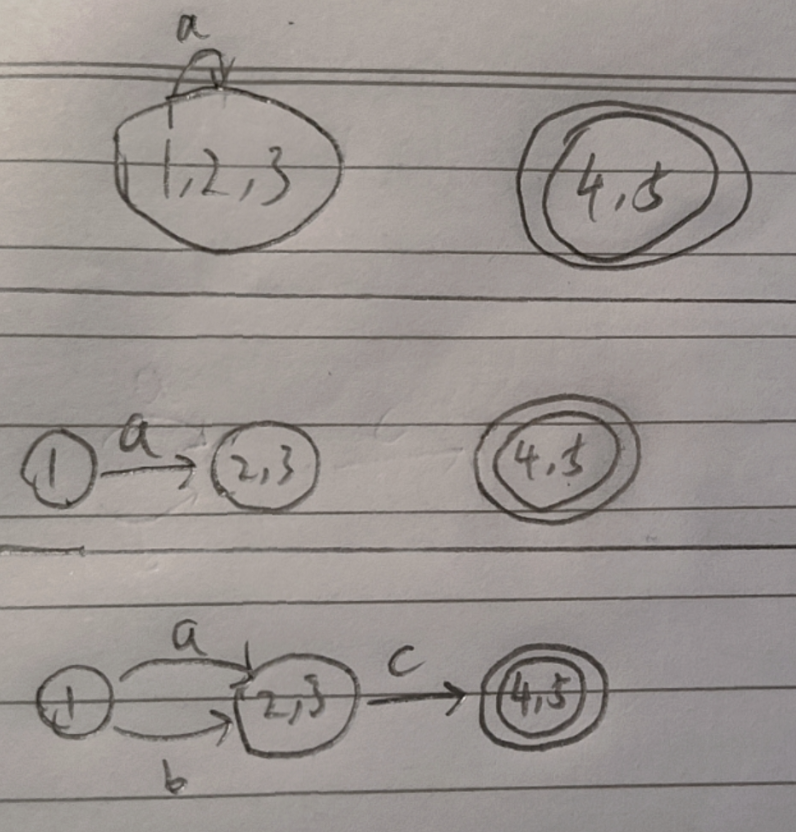 a
1,2,3 4,5
a
1 2,3 4,5
a c
1 2,3 4,5
b